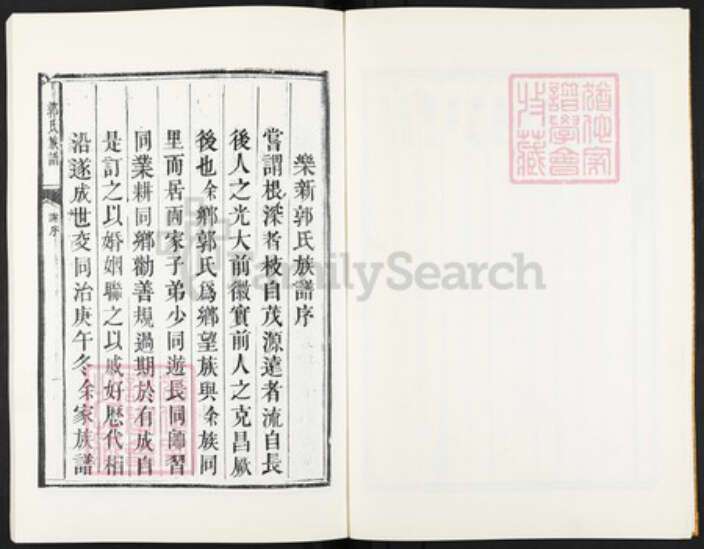 樂新郭氏族譜序
嘗謂根深者枝自茂源遠者流自長
後人之光大前徽實前人之克昌厥
後也余鄉郭氏爲鄉望族與余族同
里而居兩家子弟少同遊長同師習
同業耕同鄉勸善規過期於有成自
是訂之以婚姻聯之以戚好歷代相
沿遂成世交同治庚午冬余家族譜
郭氏族譜
譜序
FamilySearch
猶他家
譜學會
收藏